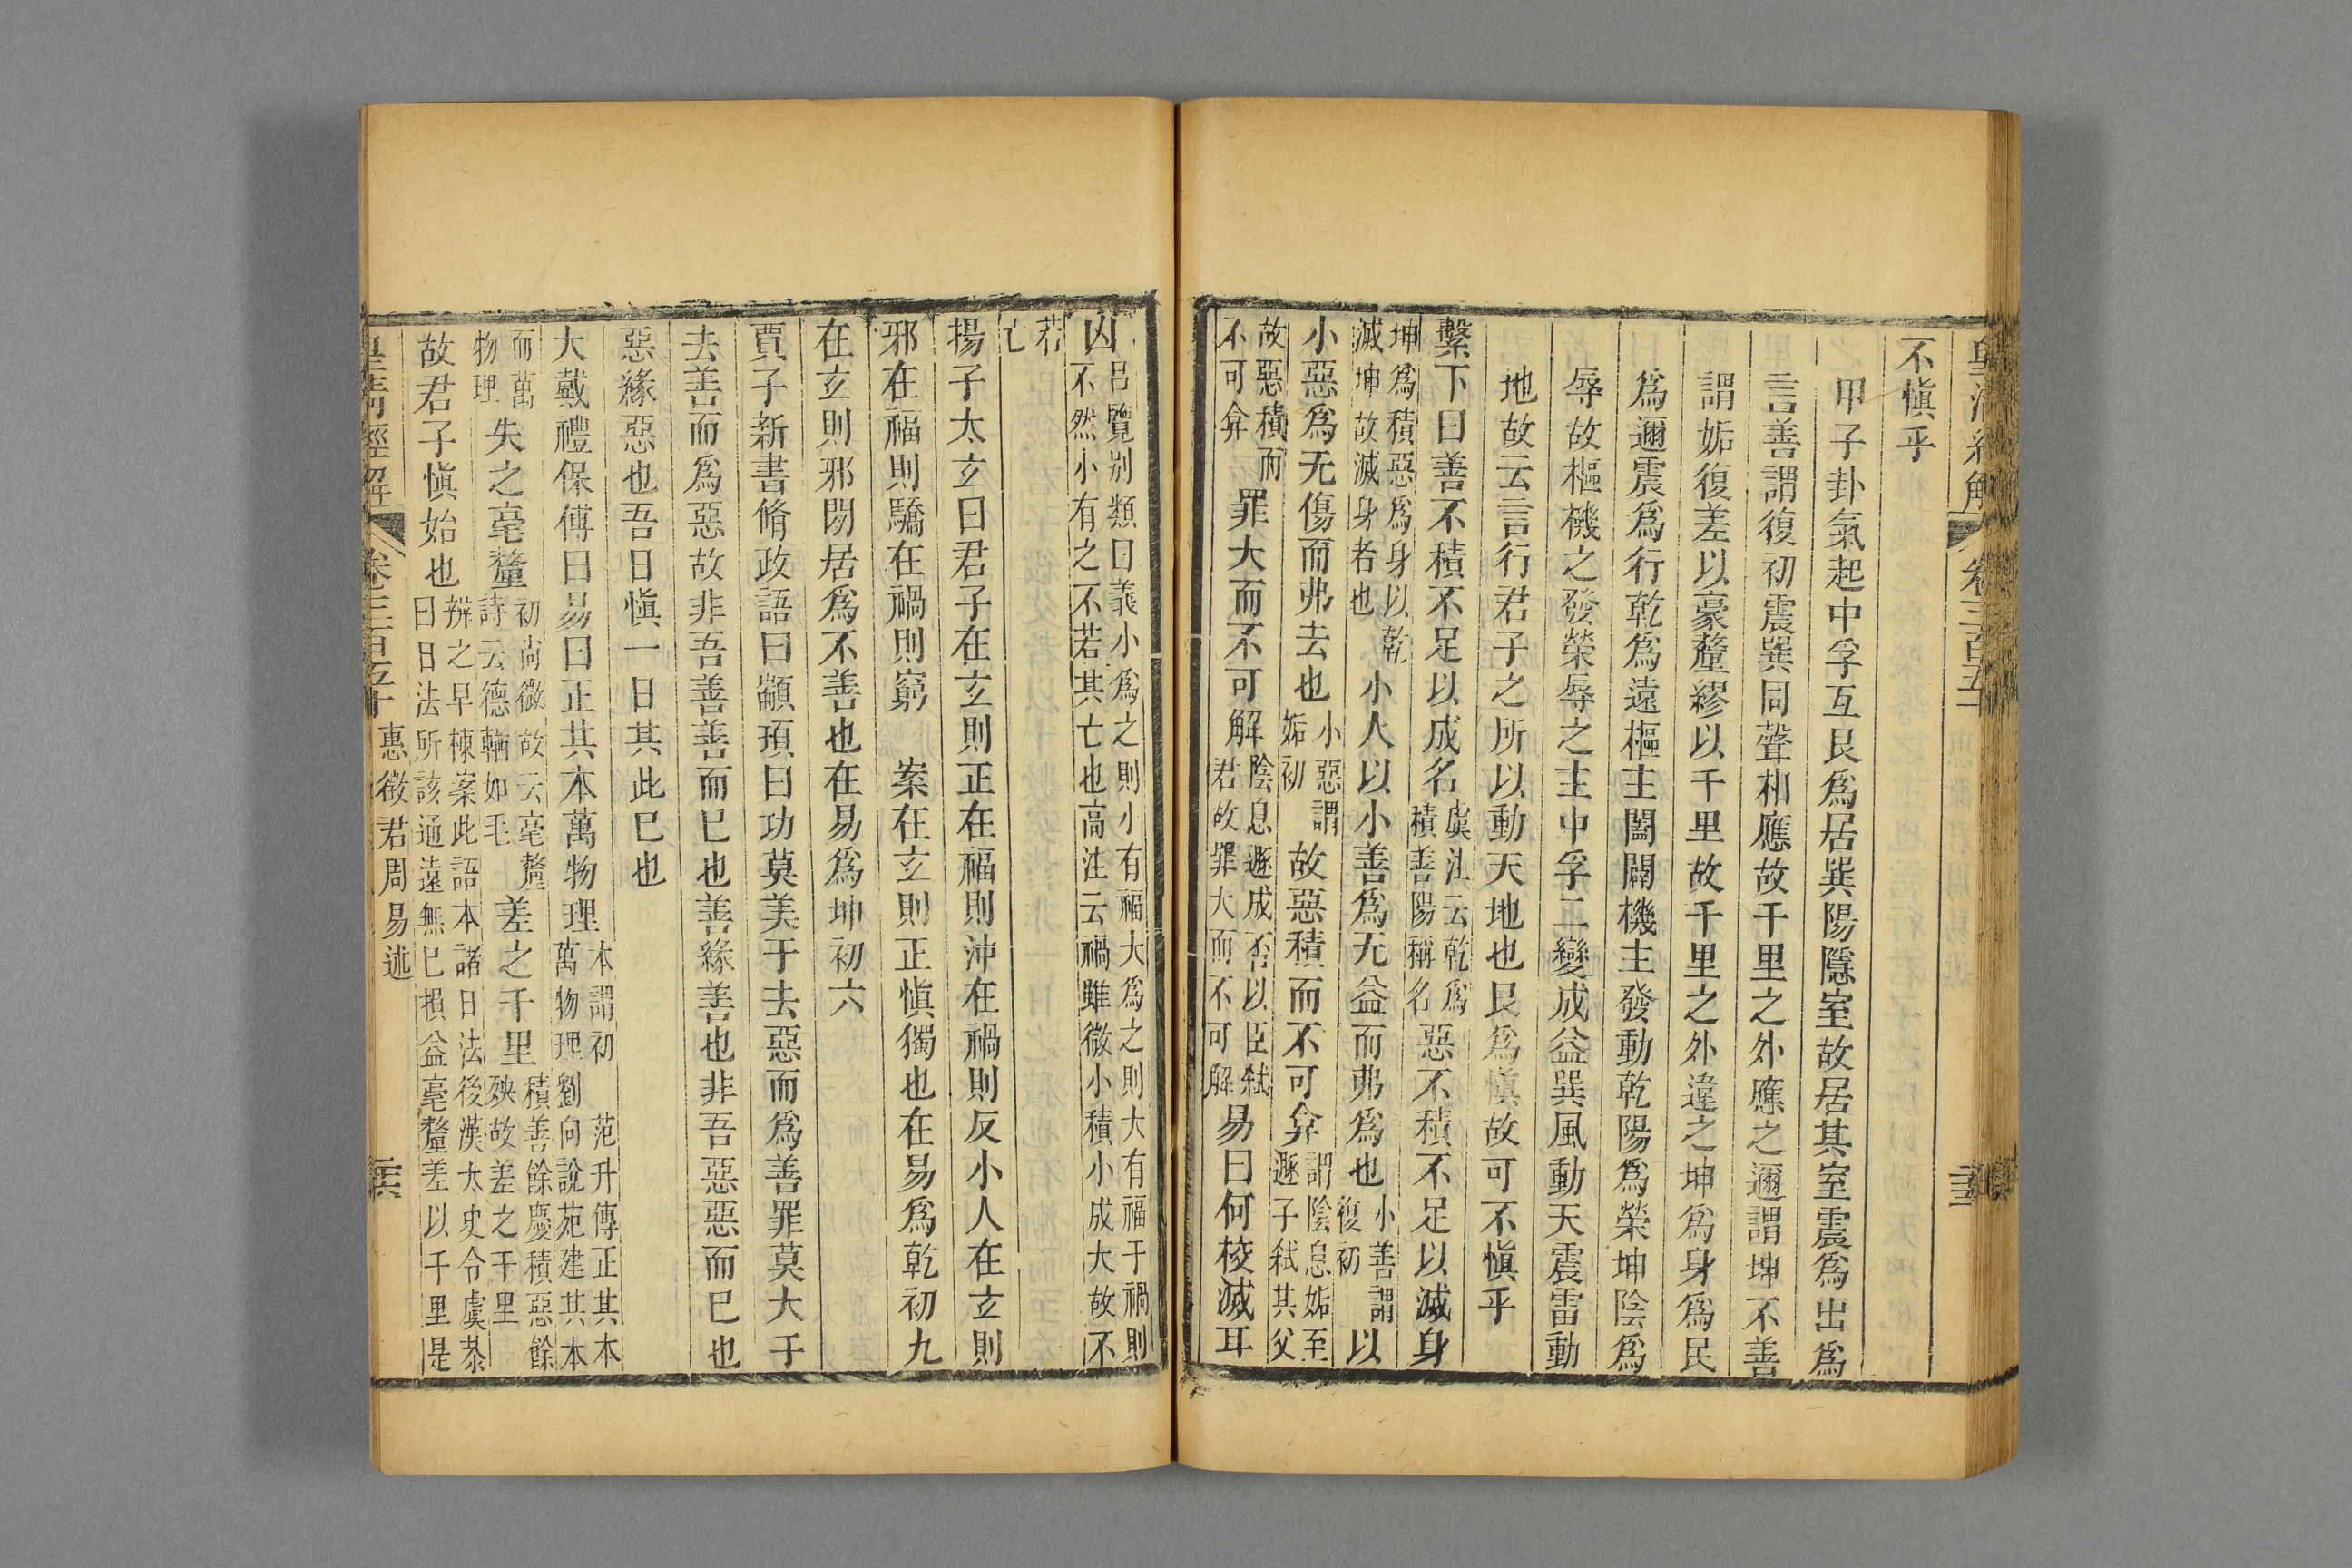 皇清經解 卷三百五十
不愼乎
甲子卦氣起中孚互艮爲居巽陽隱室故居其室震爲出爲
言善謂復初震巽同聲相應故千里之外應之邇謂坤不善
謂姤復差以豪釐繆以千里故千里之外違之坤爲身爲民
爲邇震爲行乾爲遠樞主闔闢機主發動乾陽爲榮坤陰爲
辱故樞機之發榮辱之主中孚二變成益巽風動天震雷動
地故云言行君子之所以動天地也艮爲愼故可不愼乎
繫下曰善不積不足以成名虞注云乾爲積善陽稱名惡不積不足以滅身
坤爲積惡爲身以乾滅坤故滅身者也小人以小善爲无益而弗爲也小善謂復初以
小惡爲无傷而弗去也小惡謂姤初故惡積而不可弇謂陰息姤至遯子弑其父
故惡積而不可弇罪大而不可解陰息遯成否以臣弑君故罪大而不可解易曰何校滅耳
凶呂覽別類曰義小爲之則小有福大爲之則大有福于禍則不然小有之不若其亡也高注云禍雖微小積小成大故不
若亡
揚子太玄曰君子在玄則正在福則沖在禍則反小人在玄則
邪在福則驕在禍則窮 案在玄則正愼獨也在易爲乾初九
在玄則邪閉居爲不善也在易爲坤初六
賈子新書脩政語曰顓頊曰功莫美于去惡而爲善罪莫大于
去善而爲惡故非吾善善而已也善緣善也非吾惡惡而已也
惡緣惡也吾日愼一日其此已也
大戴禮保傅曰易曰正其本萬物理本謂初 范升傳正其本萬物理劉向說苑建其本
而萬物理失之毫釐初尚微故云毫釐詩云德輶如毛差之千里積善餘慶積惡餘殃故差之千里
故君子愼始也辨之早棟案此語本諸日法後漢太史令虞恭曰日法所該通遠無已損益毫釐差以千里是
皇清經解 卷三百五十 惠徵君周易述